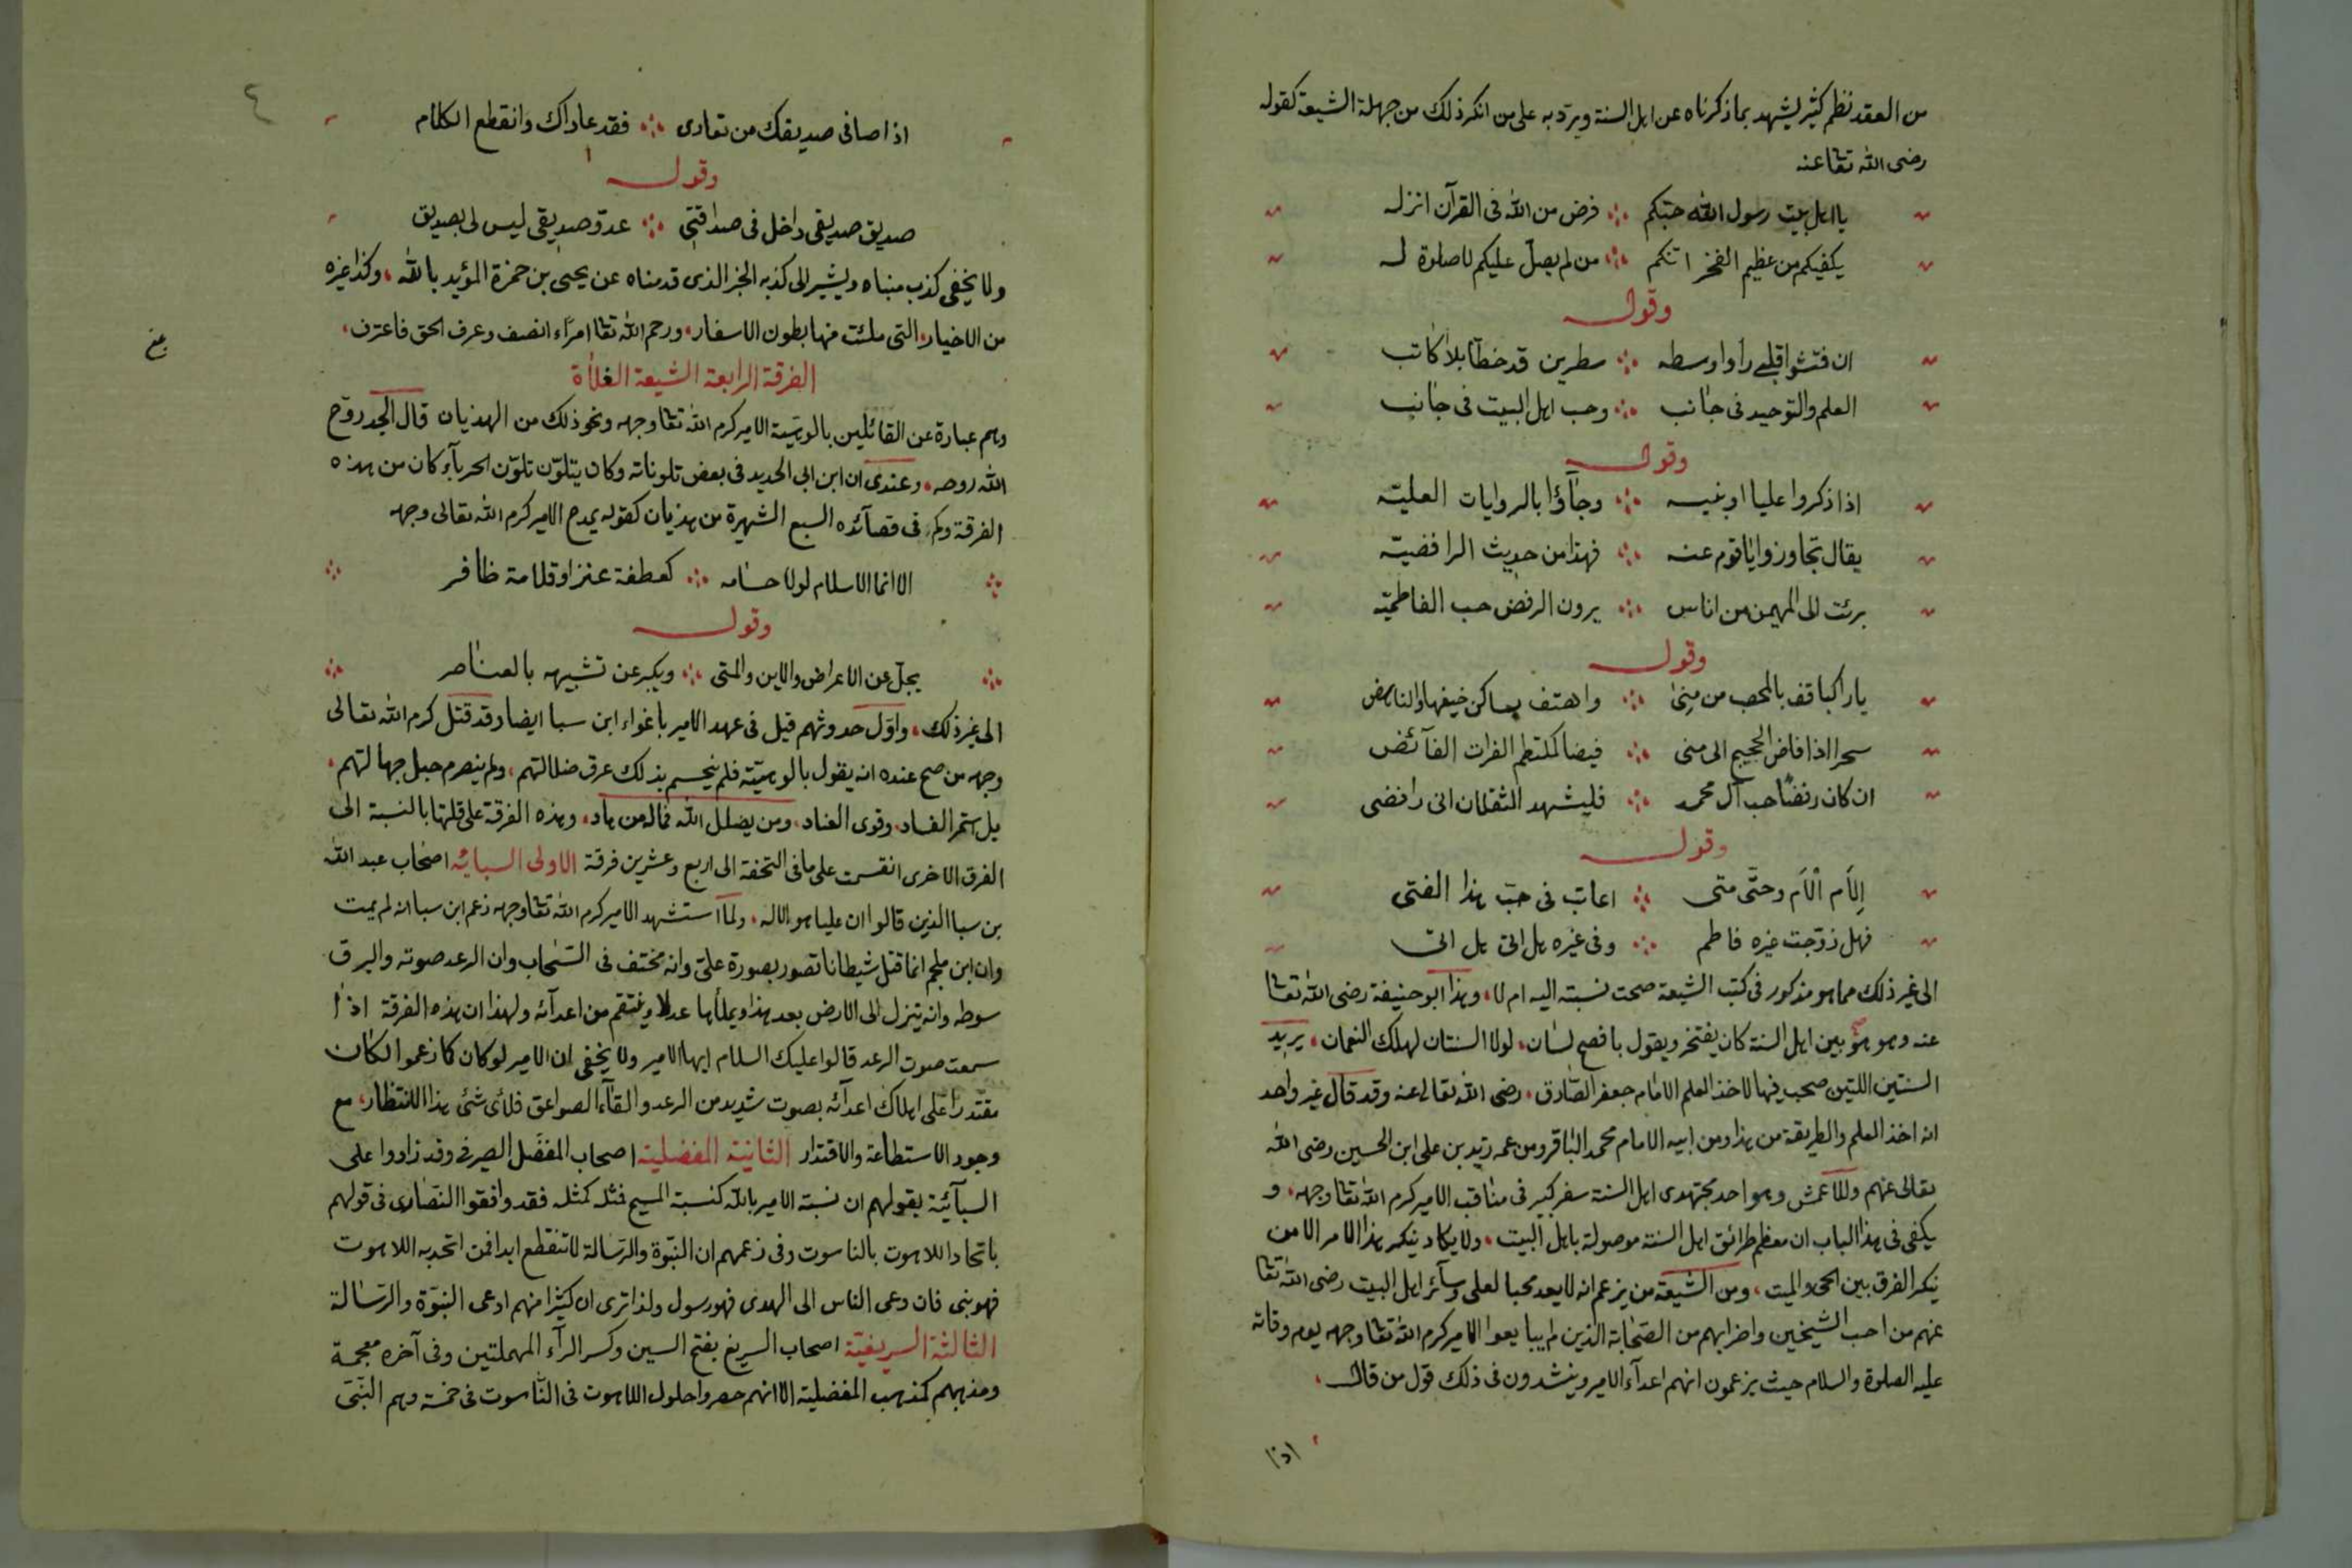 من العقد نظم كثير يشهد بما ذكرناه عن اهل السنة ويرد به على من انكر ذلك من جهلة الشيعة كقوله
رضى الله تعا عنه
يا اهل بيت رسول الله حبكم ∴ فرض من الله فى القرآن انزله
يكفيكم من عظيم الفخر انكم ∴ من لم يصل عليكم لا صلوة له
وقوله
ان فتشوا قلبى رأوا وسطه ∴ سطرين قد خطا بلا كاتب
العلم والتوحيد فى جانب ∴ وحب اهل البيت فى جانب
وقوله
اذا ذكروا عليا او بنيه ∴ وجاؤا بالروايات العليّه
يقال تجاوزوا يا قوم عنه ∴ فهذا من حديث الرافضيّه
برئت الى المهيمن من اناس ∴ يرون الرفض حب الفاطميّه
وقوله
يا راكبا قف بالمحصب من مِنىٰ ∴ واهتف بساكن خيفها والناهض
سحرا اذا فاض الحجيج الى منى ∴ فيضا كملتطم الفرات الفآئض
ان كان رفضًا حب آل محمد ∴ فليشهد الثقلان انى رافضى
وقوله
إلَام ألَام وحتّى متى ∴ اعاتب فى حبّ هذا الفتى
فهل زوّجت غيره فاطم ∴ وفى غيره هل اتى هل اتى
الى غير ذلك مما هو مذكور فى كتب الشيعة صحت نسبته اليه ام لا، وهذا ابو حنيفة رضى الله تعا
عنه وهو هو بين اهل السنة كان يفتخر ويقول بافصح لسان، لولا السنتان لهلك النعمان، يريد
السنتين اللتين صحب فيها لاخذ العلم الامام جعفر الصّادق، رضى الله تعالى عنه وقد قال غير واحد
انه اخذ العلم والطريقة من هذا ومن ابيه الامام محمد الباقر ومن عمه زيد بن على ابن الحسين رضى الله
تعالى عنهم وللأعمش وهو احد مجتهدى اهل السنة سفر كبير فى مناقب الامير كرم الله تعا وجهه، و
يكفى فى هذا الباب ان معظم طرائق اهل السنة موصولة باهل البيت، ولا يكاد ينكر هذا الامر الا من
ينكر الفرق بين الحى والميت، ومن الشيعة من يزعم انه لا يعد محبا لعلى وسآئر اهل البيت رضى الله تعا
عنهم من احب الشيخين واضرابهم من الصّحابة الذين لم يبايعوا الامير كرم الله تعا وجهه يوم وفاته
عليه الصلوة والسلام حيث يزعمون انهم اعدآء الامير وينشدون فى ذلك قول من قال،
اذا
٤
اذا صافى صديقك من تعادى ∴ فقد عاداك وانقطع الكلام
وقوله
صديق صديقى داخل فى صداقتى ∴ عدوّ صديقى ليس لى بصديق
ولا يخفى كذب مبناه ويشير الى كذبه الخبر الذى قدمناه عن يحيى بن حمزة المؤيد بالله، وكذا غيره
من الاخبار، التى ملئت منها بطون الاسفار، ورحم الله تعا امرًاء انصف وعرف الحق فاعترف،
الفرقة الرابعة الشيعة الغلاة
وهم عبارة عن القائلين بالوهيّة الامير كرم الله تعا وجهه ونحو ذلك من الهذيان قال الجد روّح
الله روحه، وعندى ان ابن ابى الحديد فى بعض تلوناته وكان يتلوّن تلوّن الحربآء كان من هذه
الفرقة وكم فى قصآئده السبع الشهيرة من هذيان كقوله يمدح الامير كرم الله تعالى وجهه
الا انما الاسلام لولا حسامه ∴ كعطفة عنز او قلامة ظافر
وقوله
يجلّ عن الاعراض والاين والمتى ∴ ويكبر عن تشبيهه بالعناصر
الى غير ذلك، واوّل حدوثهم قيل فى عهد الامير باغواء ابن سبا ايضا وقد قتل كرم الله تعالى
وجهه من صح عنده انه يقول بالوهيّته فلم ينحسم بذلك عرق ضلالتهم، ولم ينصرم حبل جهالتهم،
بل استمر الفساد، وقوى العناد، ومن يضلل الله فماله من هاد، وهذه الفرقة على قلتها بالنسبة الى
الفرق الاخرى انقسمت على ما فى التحفة الى اربع وعشرين فرقة الاولى السبائيه اصحاب عبد الله
بن سبا الذين قالوا ان عليا هو الاله، ولما استشهد الامير كرم الله تعا وجهه زعم ابن سبا انه لم يمت
وان ابن ملجم انما قتل شيطانا تصور بصورة علىّ وانه مختف فى السّحاب وان الرعد صوته والبرق
سوطه وانه ينزل الى الارض بعد هذا ويملأها عدلا وينتقم من اعدآئه ولهذا ان هذه الفرقة اذا
سمعت صوت الرعد قالوا عليك السلام ايها الامير ولا يخفى ان الامير لو كان كما زعموا لكان
مقتدرًا على اهلاك اعدآئه بصوت شديد من الرعد والقآء الصواعق فلأى شئ هذا الانتظار، مع
وجود الاستطاعة والاقتدار الثانية المفضلية اصحاب المفضّل الصيرفى وقد زادوا على
السبآئيّة بقولهم ان نسبة الامير بالله كنسبة المسيح فمثله كمثله فقد وافقوا النصّارى فى قولهم
باتحاد اللاهوت بالناسوت وفى زعمهم ان النبوّة والرسالة لا تنقطع ابدا فمن اتحد به اللاهوت
فهو نبى فان دعى الناس الى الهدى فهو رسول ولذا ترى ان كثيرا منهم ادعى النبوّة والرسالة
الثالثة السريغيّة اصحاب السريغ بفتح السين وكسر الرآء المهملتين وفى آخره معجمة
ومذهبهم كمذهب المفضلية الا انهم حصروا حلول اللاهوت فى النّاسوت فى خمسة وهم النبّى